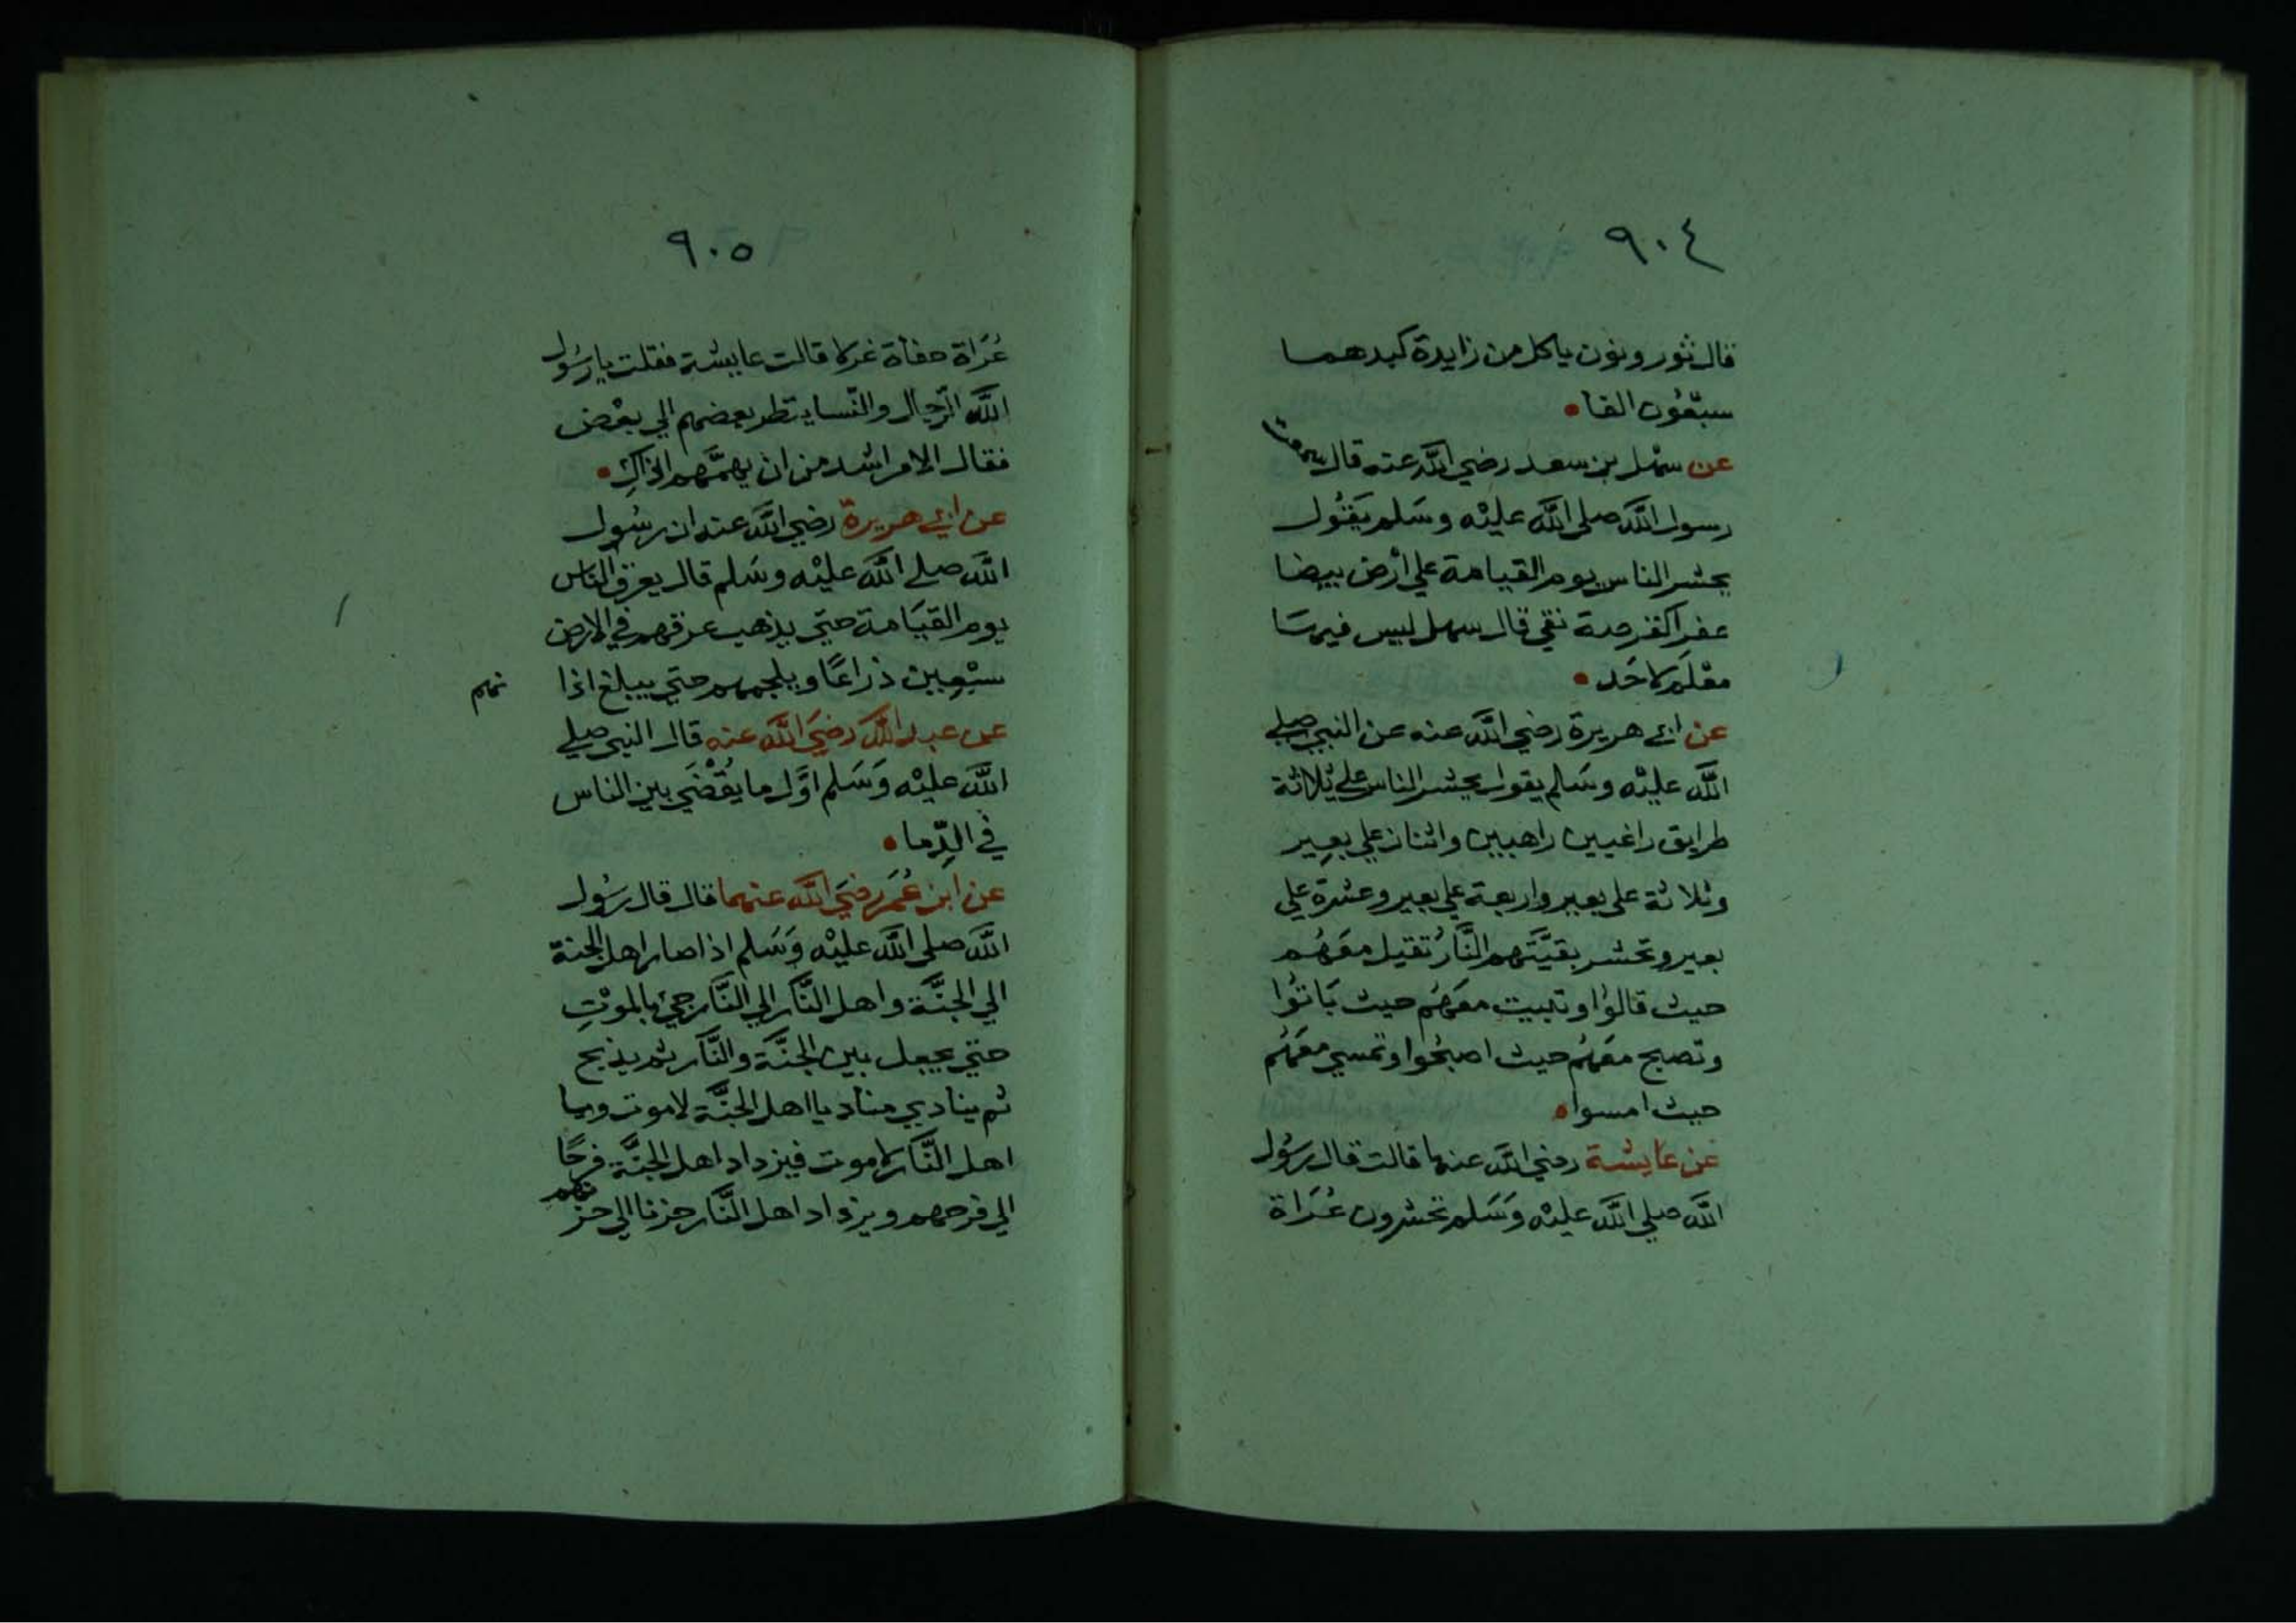 ٩٠٤
قال ثور ونون ياكل من زايدة كبدهما
سبعون الفا
عن سهل بن سعد رضي الله عنه قال سمعت
رسول الله صلى الله عليْه وسَلم يَقُول
يحشر الناس يوم القيامة علي ارْض بيضا
عفرا كقرصة نقي قال سهل ليس فيها
معْلَم لاحَد
عن ابي هريرة رضي الله عنه عن النبي صلي
الله عليْه وسَلم يقول يحشر الناس علي ثلاثة
طرايق راغبين راهبين واثنان علي بعِير
وثلاثة على بعير واربعة علي بعير وعشرة علي
بعير وتحشر بقيَّتَهم النَّارُ تقيل معَهُم
حيث قالوْا وتبيت معَهُم حيث بَاتُوا
وتصبح معَهُم حيث اصبحُوا وتمسي معَهُم
حيث امسوا
عن عايشة رضي الله عنها قالت قال رسُول
الله صلي الله عليْه وَسَلم تحشرون عُرَاة
٩٠٥
عُرَاة حفاة غرلا قالت عايشة فقلت يا رسُول
الله الرّجال والنّسا ينظر بعضهم الي بعْض
فقال الامر اشد من ان يهمَّهم ذاكِ
عن ابي هريرة رضي الله عنه ان رسُول
الله صلي الله عليْه وسَلم قال يعرق الناس
يوم القيَامة حتي يذهب عرقهم في الارض
سبْعِين ذراعًا ويلجمهم حتي يبلغ اذا
نهم
عن عبد الله رضيَ الله عنه قال النبي صلي
الله عليْه وَسَلم اوَّل ما يُقْضَي بين الناس
في الدِّما
عن ابن عُمَر رضيَ الله عنهما قال قال رسُول
الله صلي الله عليْه وَسَلم اذا صار اهل الجنة
الي الجنَّة واهل النَّار الي النَّار جيَ بالموْتِ
حتي يجعل بين الجنَّة والنَّار ثم يذبح
ثم ينادي مناد يا اهل الجنَّة لا موت ويا
اهل النَّار لا موت فيزداد اهل الجنَّة فرحًا
الي فرحهم ويزداد اهل النَّار حزنا الي حز
نهم